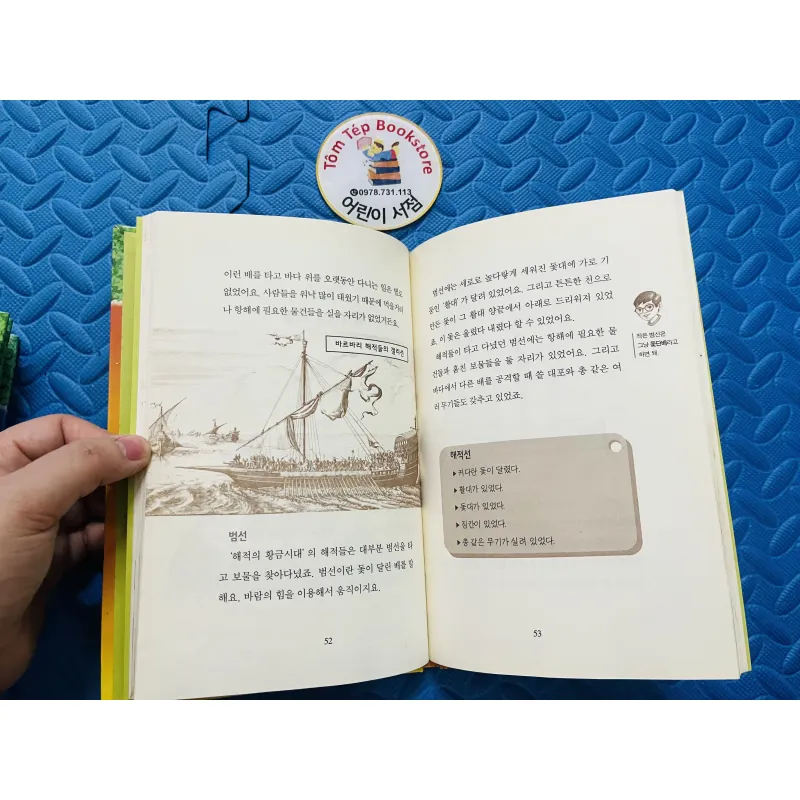 Tôm Tép Bookstore
0978.731.113
어린이 서점
이런 배를 타고 바다 위를 오랫동안 다니는 일은 별로
없었어요. 사람들을 워낙 많이 태웠기 때문에 먹을거리
나 항해에 필요한 물건들을 실을 자리가 없었거든요.
바르바리 해적들의 갤리선
범선
'해적의 황금시대'의 해적들은 대부분 범선을 타
고 보물을 찾아다녔죠. 범선이란 돛이 달린 배를 말
해요. 바람의 힘을 이용해서 움직이지요.
52
범선에는 세로로 높다랗게 세워진 돛대에 가로 기
둥인 '활대'가 달려 있었어요. 그리고 튼튼한 천으로
만든 돛이 그 활대 양끝에서 아래로 드리워져 있었
죠. 이 돛은 올렸다 내렸다 할 수 있었어요.
해적들이 타고 다녔던 범선에는 항해에 필요한 물
건들과 훔친 보물들을 둘 자리가 있었어요. 그리고
바다에서 다른 배를 공격할 때 쓸 대포와 총 같은 여
러 무기들도 갖추고 있었죠.
작은 범선은
그냥 돛단배라고
하면 돼.
해적선
▶커다란 돛이 달렸다.
▶활대가 있었다.
▶돛대가 있었다.
▶짐칸이 있었다.
▶총 같은 무기가 실려 있었다.
53